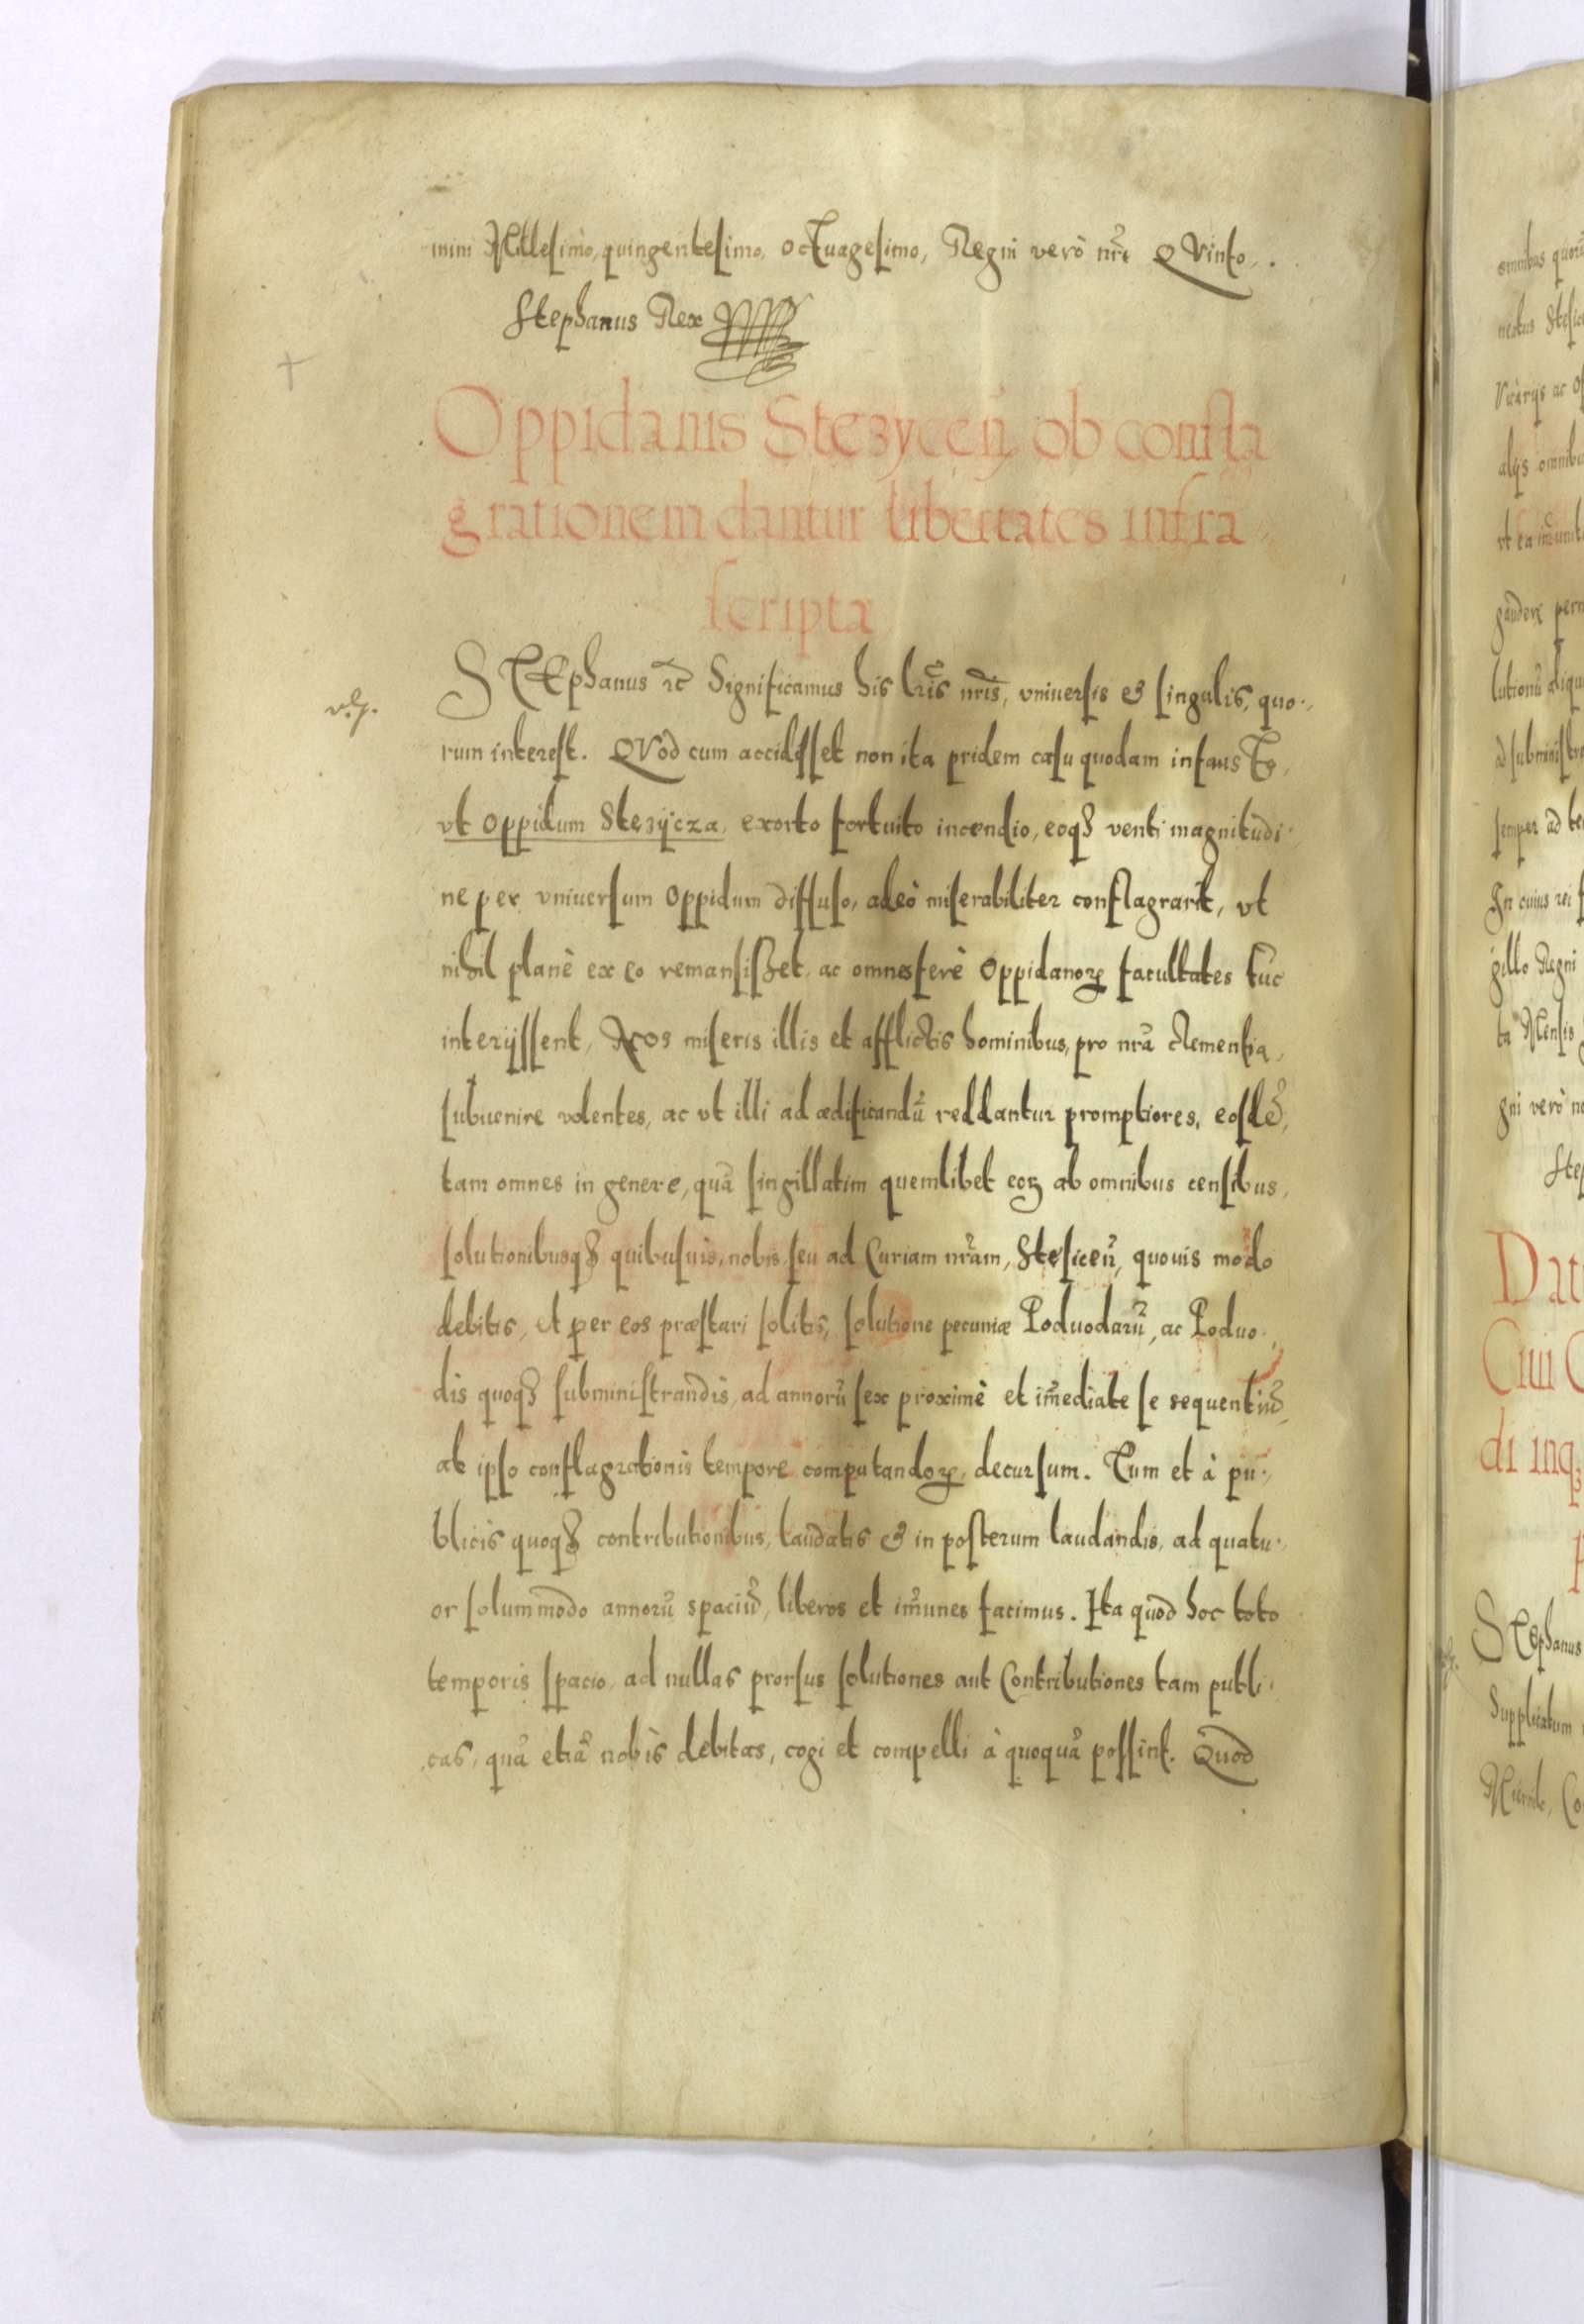 mini Millesimo, quingentesimo, octuagesimo, Regni verò nr̃i QVinto.
Stephanus Rex
Oppidanis Stezyceñ ob confla
grationem dantur libertates infra
scripta
STEphanus ꝛc̃ Significamus his lr̃is nr̃is, vniuersis & singulis, quo
rum interest. QVod cum accidisset non ita pridem casu quodam infausto,
vt Oppidum Stezycza, exorto fortuito incendio, eoqȝ venti magnitudi
ne per vniuersum Oppidum diffuso, adeò miserabiliter conflagrarit, vt
nihil planè ex eo remansisset, ac omnes ferè Oppidanoꝝ facultates tūc
interijssent, Nos miseris illis et afflictis hominibus, pro nr̃a clementia,
subuenire volentes, ac vt illi ad ædificandū reddantur promptiores, eosdē,
tam omnes in genere, quā singillatim quemlibet eoꝝ ab omnibus censibus,
solutionibusqȝ quibusuis, nobis seu ad Curiam nr̃am, Stesiceñ, quouis modo
debitis, et per eos præstari solitis, solutione pecuniæ Poduodarū, ac Poduo
dis quoqȝ subministrandis, ad annorū sex proximè et im̄ediate se sequentiū,
ab ipso conflagrationis tempore computandoꝝ, decursum. Tum et à pu
blicis quoqȝ contributionibus, laudatis & in posterum laudandis, ad quatu
or solummodo annorū spaciū, liberos et im̄unes facimus. Ita quod hoc toto
temporis spacio, ad nullas prorsus solutiones aut Contributiones tam publi
cas, quā etiā nobis debitas, cogi et compelli à quoquā possint. Quod
omnibus quorū
Vicarijs ac of
alijs omnibu
vt ea im̄unit
gaudere perm
lutionū aliqu
ad subministra
semper ad te
In cuius rei f
gillo Regni
ta Mensis
gni verò no
Step
Dat
Ciui C
di inq
STEphanus
Supplicatum